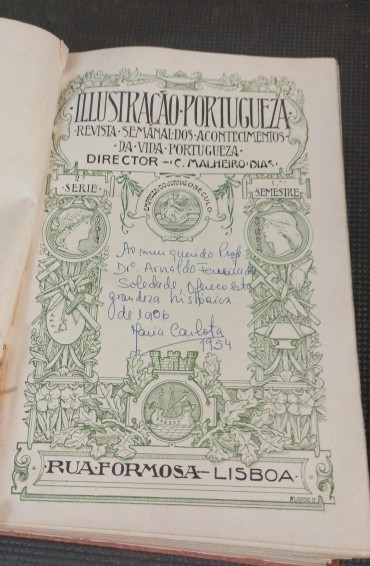 ILLUSTRAÇÃO·PORTUGUEZA
·REVISTA·SEMANAL·DOS·ACONTECIMENTOS·
·DA·VIDA·PORTUGUEZA·
DIRECTOR–·C. MALHEIRO·DIAS·
·SERIE·
EMPREZA·DO·JORNAL·O·SECULO
SEMESTRE·
Ao meu querido Prof.
Dr. Arnaldo
Soledade, ofereço esta
grandeza histórica
de 1906
Maria Carlota
1954
·RUA·FORMOSA–LISBOA·